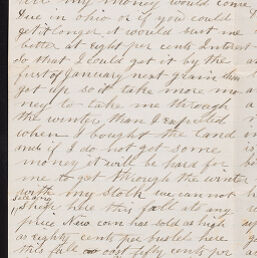 all my money would come
Due in ohio or if you could
get it longer it would suit me
better at eight per cent Interest
so that I could get it by the
first of January next grain has
got up so it take more mo
ney to take me through
the winter than I expected
when I bought the land
and if I do not get some
money it will be hard for
me to get through the winter
with my stock we cannot
Sell any
Stock here this fall at any
price New corn has sold as high
as eighty cents per bushel here
this fall oats fifty cents per